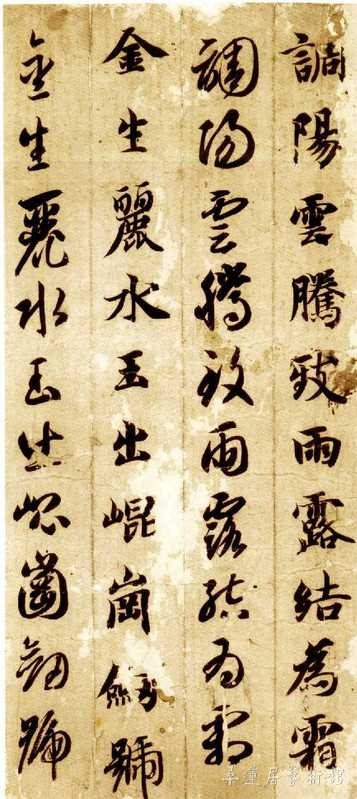 調陽雲騰致雨露結為霜
調陽雲騰致雨露結為霜
金生麗水玉出崐崗劔號
金生麗水玉出崐崗劔號
蓮居藝術館